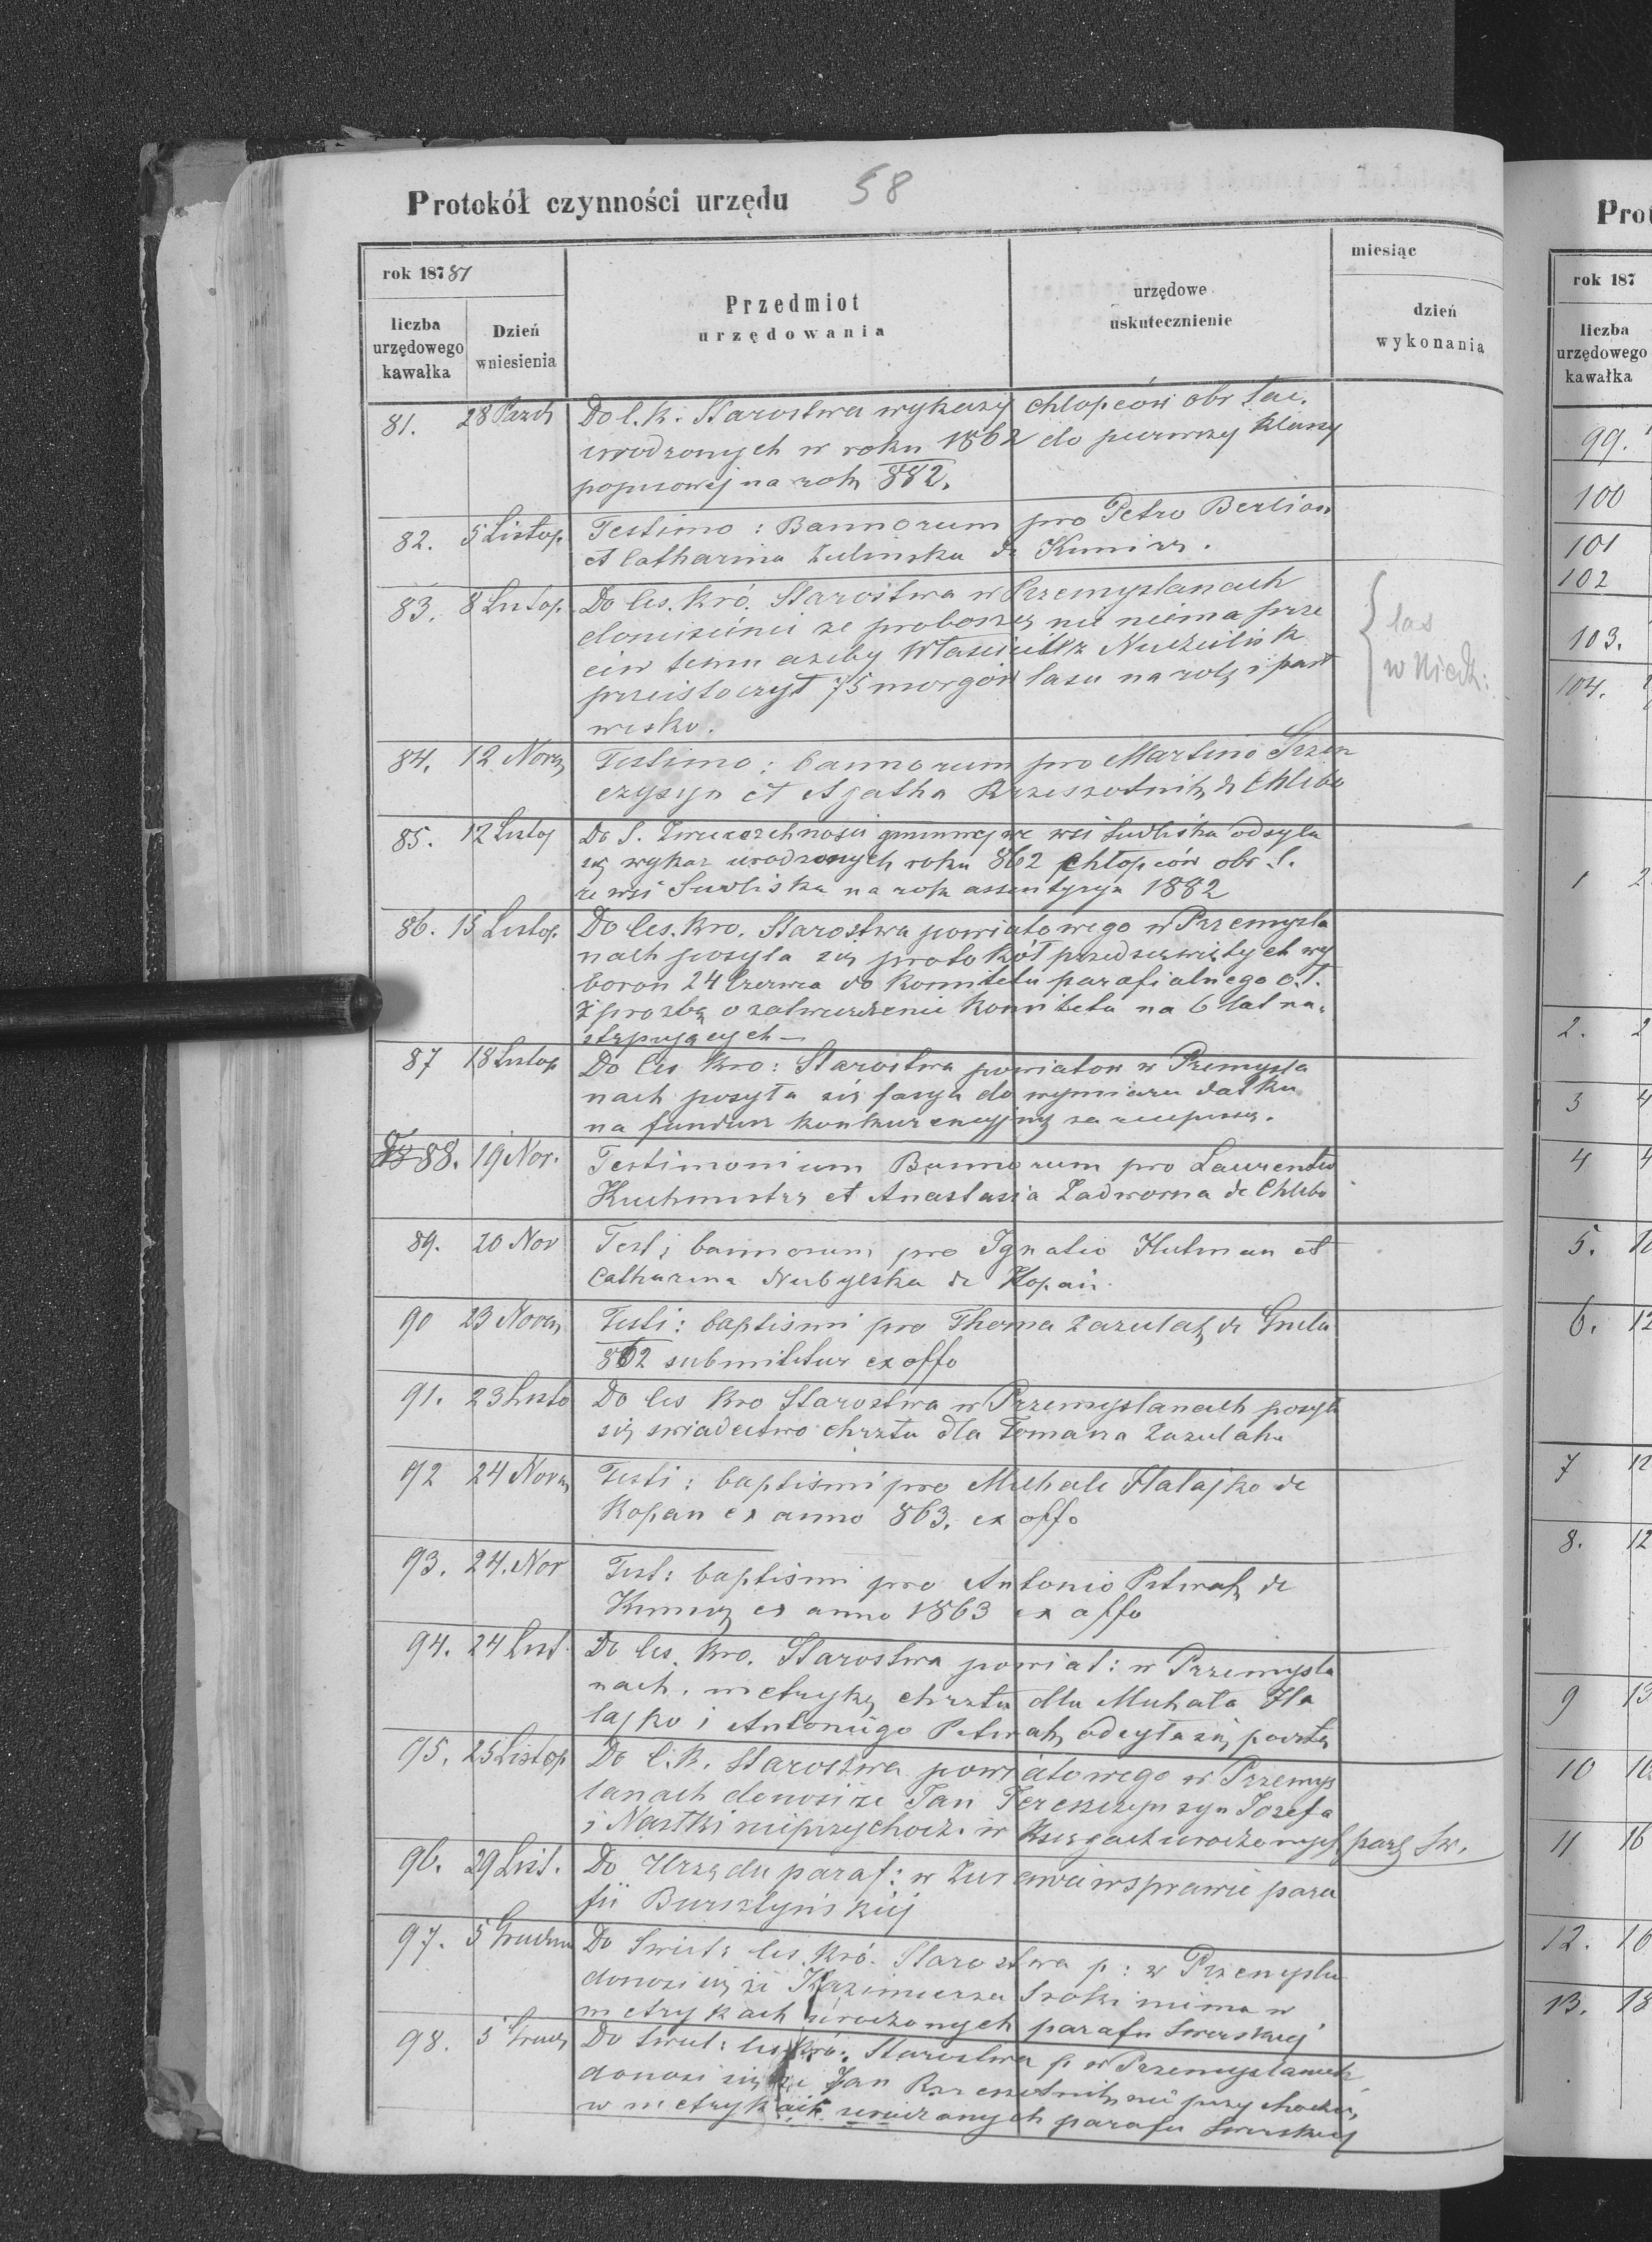 Protokół czynności urzędu 58
rok 18781
liczba urzędowego kawałka
Dzień wniesienia
Przedmiot urzędowania
urzędowe uskutecznienie
miesiąc
dzień wykonania
81. 28 Pazdz Do C. K. Starostwa wykazy chłopców obr łac.
urodzonych w roku 1862 do pierwszej klassy
popisowej na rok 882.
82. 5 Listop. Testimo: Bannorum pro Petro Berlian
et Catharina Zulinska de Kimirz.
83. 8 Listop. Do Ces. Kró. Starostwa w Przemyslanach
że proboszcz nic niema prze
ciw temu azeby Właściciel z
przeistoczył 75 morgów lasu na rolę i past
wisko.
{ las
w Niedz:
84. 12 Novem Testimo: bannorum pro Martino
et Agatha Rzeszotnik de Chlebo
85. 12 Listop Do S. Zwierzchności gminnej we wsi Siwliska odsyla
się wykaz urodzonych roku 862 chłopców obr ł.
ze wsi Siwliska na rok assentyryn 1882
86. 15 Listop. Do Ces. Kro. Starostwa powiatowego w Przemysla
nach posyła się protokół przedsięwziętych wy
borów 24 Czerwca do Komitetu parafialnego o.ł.
z prozbą o zatwierdzenie Komitetu na 6 lat na-
stępujących —
87 18 Listop Do Ces Kro: Starostwa powiatow w Przemysla
nach posyła się fasya do wymiaru datku
na fundusz konkurencyjny
88. 19 Nov. Testimonium Bannorum pro Laurentio
Kuchmistrz et Anastasia Zadworna de Chlebo
89. 20 Nov Test: bannorum pro Ignatio Hutman et
Catharina Niebylska de Kopań.
90 23 Novem Testi: baptismi pro Thoma Zazulak de
862 submititur ex offo
91. 23 Listo Do Ces Kro Starostwa w Przemyslanach posyła
się swiadectwo chrztu dla Tomasza Zazulaka
92 24 Novem Testi: baptismi pro Michale Hałajko de
Kopan ex anno 863. ex offo
93. 24. Nov Test: baptismi pro Antonio de
ex anno 1863 ex offo
94. 24 List. Do Ces. Kro. Starostwa powiat: w Przemysla
nach. metrykę chrztu dla Michała Ha
łajko i Antoniego odsyła się
95. 25 Listop Do C. K. Starostwa powiatowego w Przemys
lanach donosi że Jan Tereszczyn syn Józefa
i Nastki nieprzychodzi w Księgach urodzonych
96. 29 List. Do Urzędu paraf: w Zurawnie w sprawie para
fii Bursztyńskiéj
97. 5 Grudnia Do Swiet: Ces. Kró. Starostwa p: w Przemysla
donosi się że Kazimierza Sroki niema w
metrykach urodzonych parafii Swirskiej
98. 5 Grudz Do Swiet: Ces. Kró: Starostwa p w Przemyslanach
donosi się że Jan Rzeszotnik nie przychodzi
w metrykach urodzonych parafii Swirskiej
Prot
rok 187
liczba urzędowego kawałka
99.
100
101
102
103.
104.
1 2
2. 2
3 4
4 4
5.
6. 12
7 12
8. 12
9 13
10
11 16
12. 16
13. 18